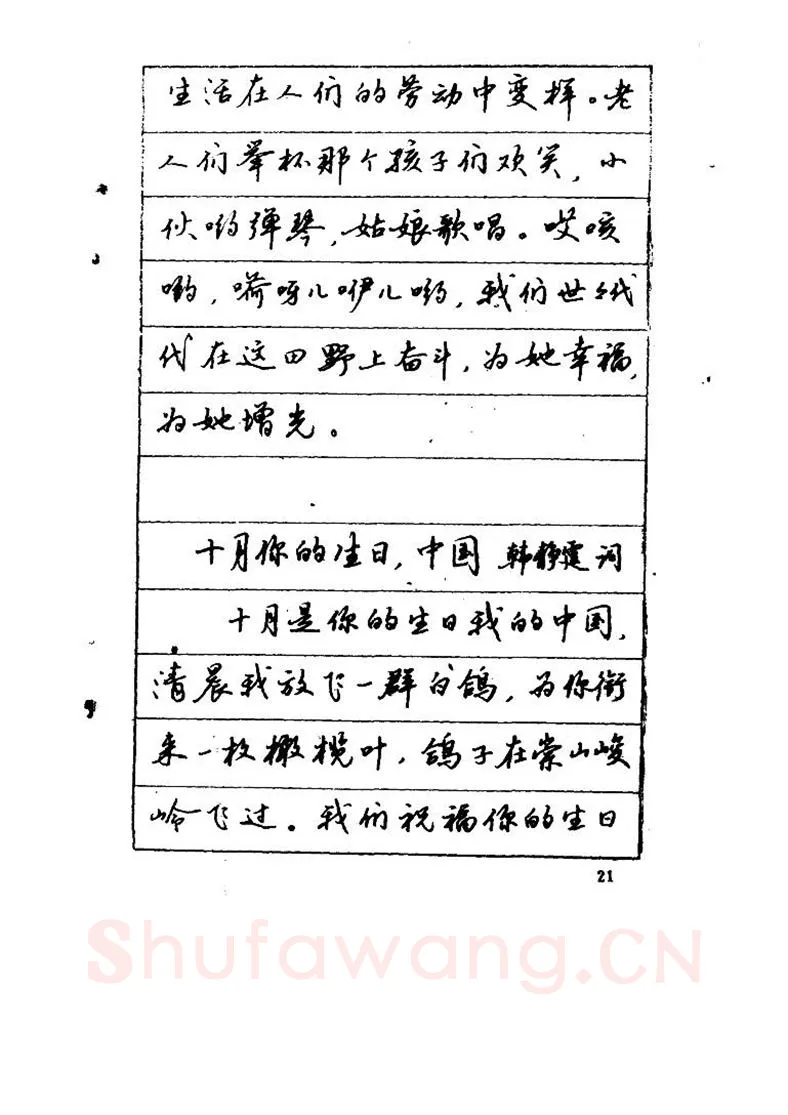 生活在人们的劳动中变样。老
人们举杯那个孩子们欢笑，小
伙哟弹琴，姑娘歌唱。哎咳
哟，嗬呀儿咿儿哟，我们世世代
代在这田野上奋斗，为她幸福，
为她增光。
十月你的生日，中国 韩静霆词
十月是你的生日我的中国，
清晨我放飞一群白鸽，为你衔
来一枚橄榄叶，鸽子在崇山峻
岭飞过。我们祝福你的生日
21
Shufawang.CN